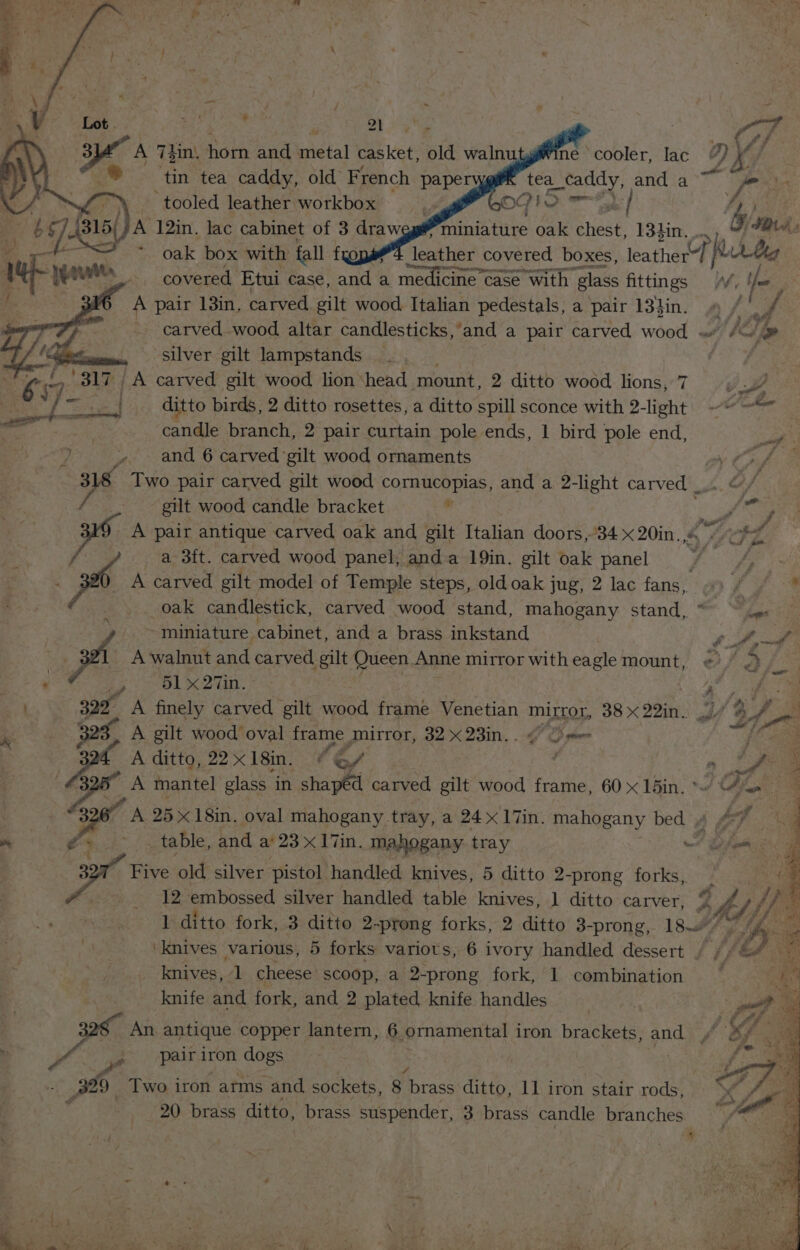 Lot 21
314 A 7½in. horn and metal casket, old walnut wine cooler, lac
tin tea caddy, old French paperwork tea caddy, and a
tooled leather workbox
315 A 12in. lac cabinet of 3 drawers miniature oak chest, 13½in.
oak box with fall 4 leather covered boxes, leather
covered Etui case, and a medicine case with glass fittings
316 A pair 13in. carved gilt wood Italian pedestals, a pair 13½in.
carved wood altar candlesticks, and a pair carved wood
silver gilt lampstands
317 A carved gilt wood lion head mount, 2 ditto wood lions, 7
ditto birds, 2 ditto rosettes, a ditto spill sconce with 2-light
candle branch, 2 pair curtain pole ends, 1 bird pole end,
and 6 carved gilt wood ornaments
318 Two pair carved gilt wood cornucopias, and a 2-light carved
gilt wood candle bracket
319 A pair antique carved oak and gilt Italian doors, 34 × 20in.,
a 3ft. carved wood panel, and a 19in. gilt oak panel
320 A carved gilt model of Temple steps, old oak jug, 2 lac fans,
oak candlestick, carved wood stand, mahogany stand,
miniature cabinet, and a brass inkstand
321 A walnut and carved gilt Queen Anne mirror with eagle mount,
51 × 27in.
322 A finely carved gilt wood frame Venetian mirror, 38 × 22in.
323 A gilt wood oval frame mirror, 32 × 23in.
324 A ditto, 22 × 18in.
325 A mantel glass in shaped carved gilt wood frame, 60 × 15in.
326 A 25 × 18in. oval mahogany tray, a 24 × 17in. mahogany bed
table, and a 23 × 17in. mahogany tray
327 Five old silver pistol handled knives, 5 ditto 2-prong forks,
12 embossed silver handled table knives, 1 ditto carver,
1 ditto fork, 3 ditto 2-prong forks, 2 ditto 3-prong, 18
knives various, 5 forks various, 6 ivory handled dessert
knives, 1 cheese scoop, a 2-prong fork, 1 combination
knife and fork, and 2 plated knife handles
328 An antique copper lantern, 6 ornamental iron brackets, and
pair iron dogs
329 Two iron arms and sockets, 8 brass ditto, 11 iron stair rods,
20 brass ditto, brass suspender, 3 brass candle branches